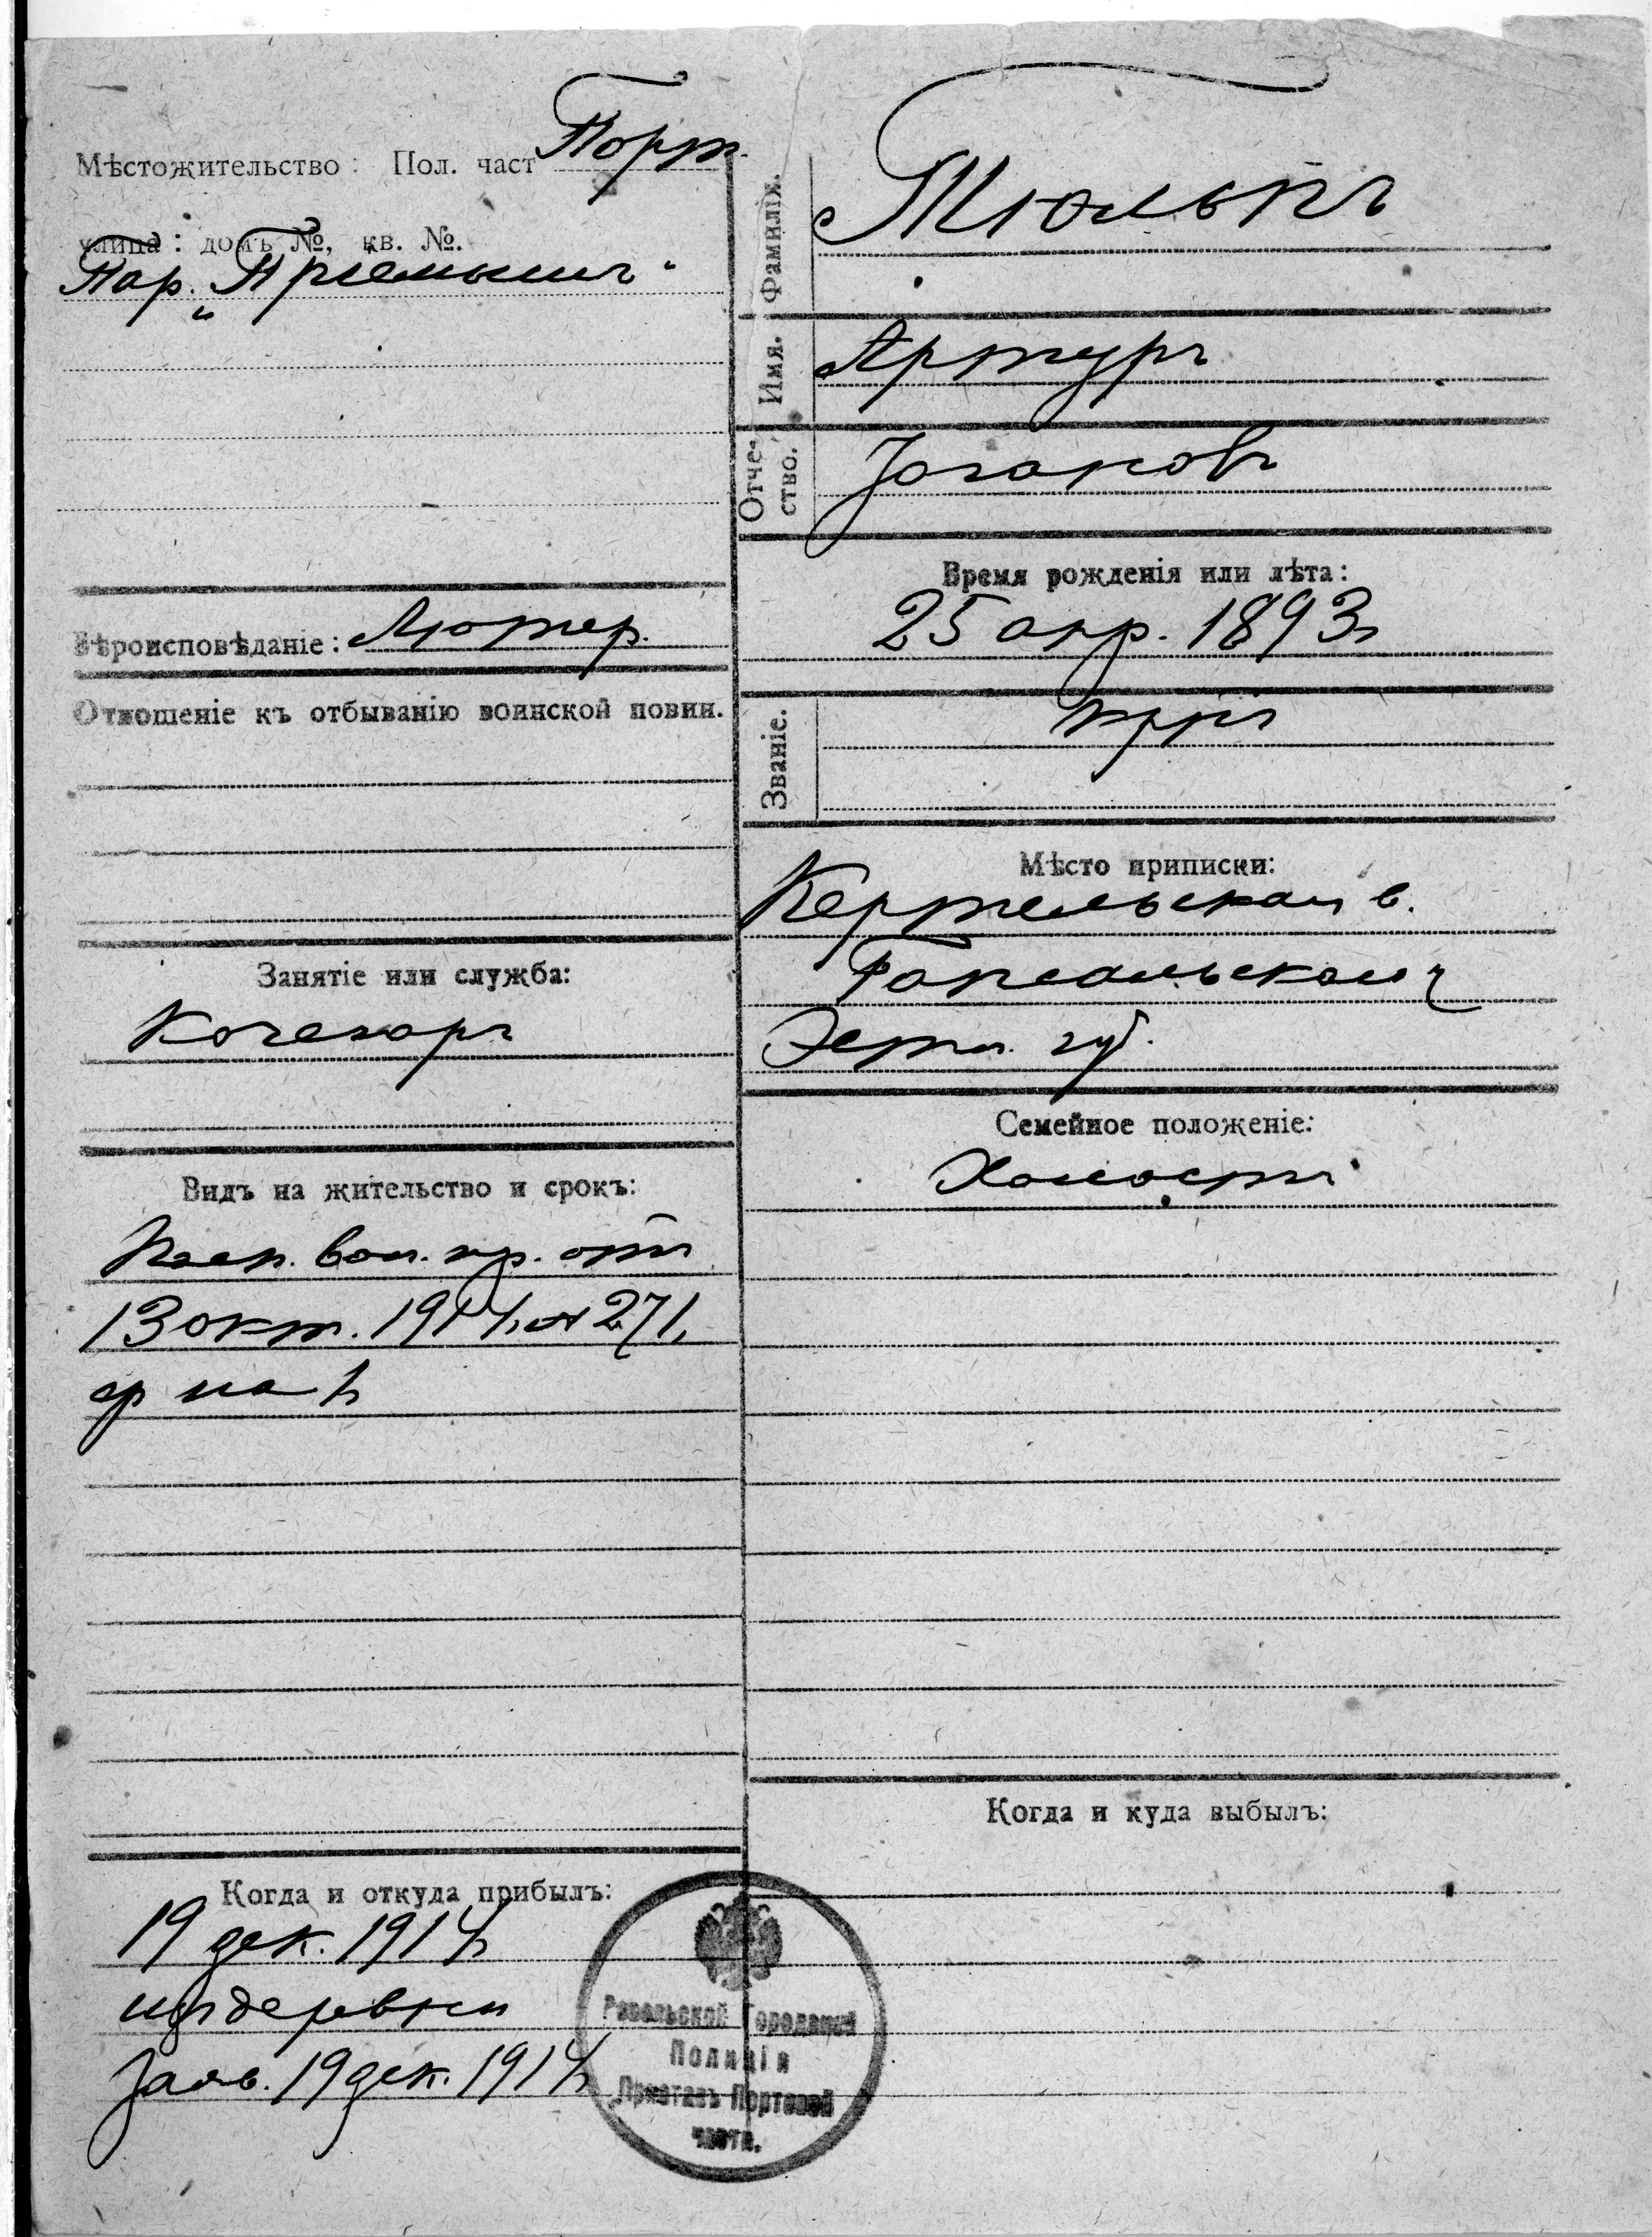 Мѣстожительство: Пол. част Порт.
улица: домъ №, кв. №.
Пар. „Пріемышъ“
Вѣроисповѣданіе: Лютер.
Отношеніе къ отбыванію воинской повин.
Занятіе или служба:
Кочегаръ
Видъ на жительство и срокъ:
вол. пр. отъ
13 окт. 1914 г. № 271,
ср на 1 г
Когда и откуда прибылъ:
19 дек. 1914 г
изъ деревни
Заяв. 19 дек. 1914 г
Фамилія.
Тюлькъ
Имя.
Артуръ
Отчество.
Іогановъ
Время рожденія или лѣта:
25 апр. 1893 г
Званіе.
крнъ
Мѣсто приписки:
Кертельской в.
Гапсальского у
Эстл. губ.
Семейное положеніе:
Холостъ
Когда и куда выбылъ:
Ревельской Городской
Полиція
Приставъ Портовой
части.